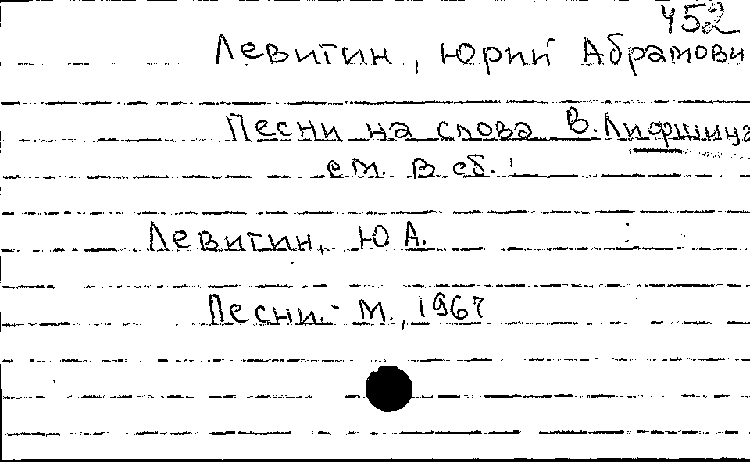 452
Левитин, Юрий Абрамови
Песни на слова В. Лифшица
см. в сб.:
Левитин, Ю А.
Песни. - М., 1967